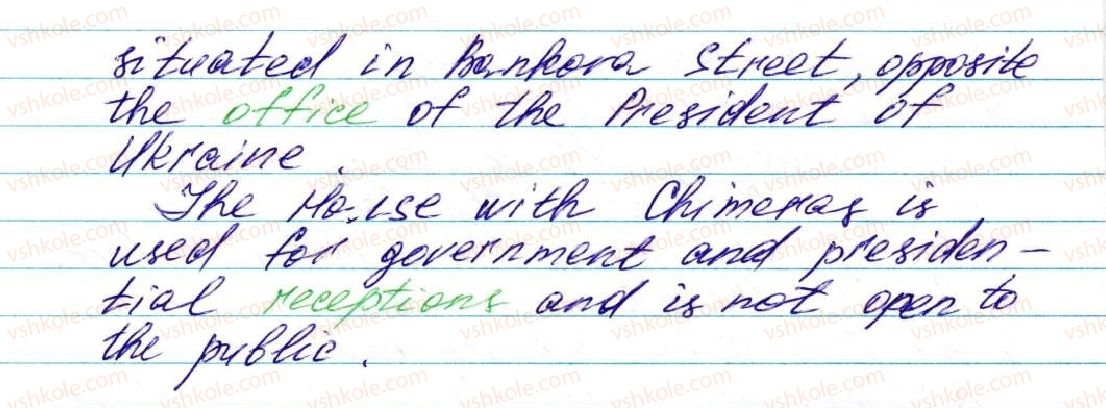 situated in Bankova Street, opposite
the office of the President of
Ukraine.
The House with Chimeras is
used for government and presiden-
tial receptions and is not open to
the public.